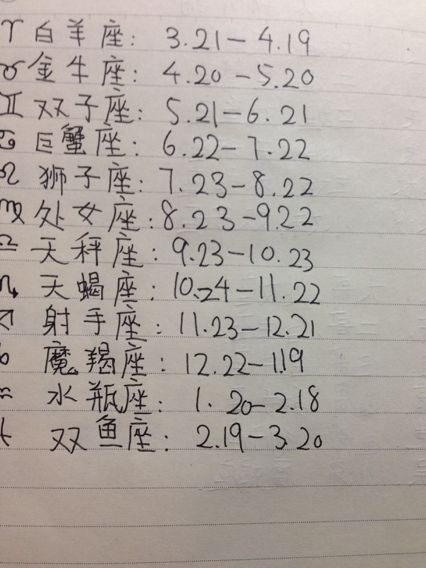 ♈白羊座: 3.21-4.19
♉金牛座: 4.20-5.20
♊双子座: 5.21-6.21
♋巨蟹座: 6.22-7.22
♌狮子座: 7.23-8.22
♍处女座: 8.23-9.22
♎天秤座: 9.23-10.23
♏天蝎座: 10.24-11.22
♐射手座: 11.23-12.21
♑魔羯座: 12.22-1.19
♒水瓶座: 1.20-2.18
♓双鱼座: 2.19-3.20